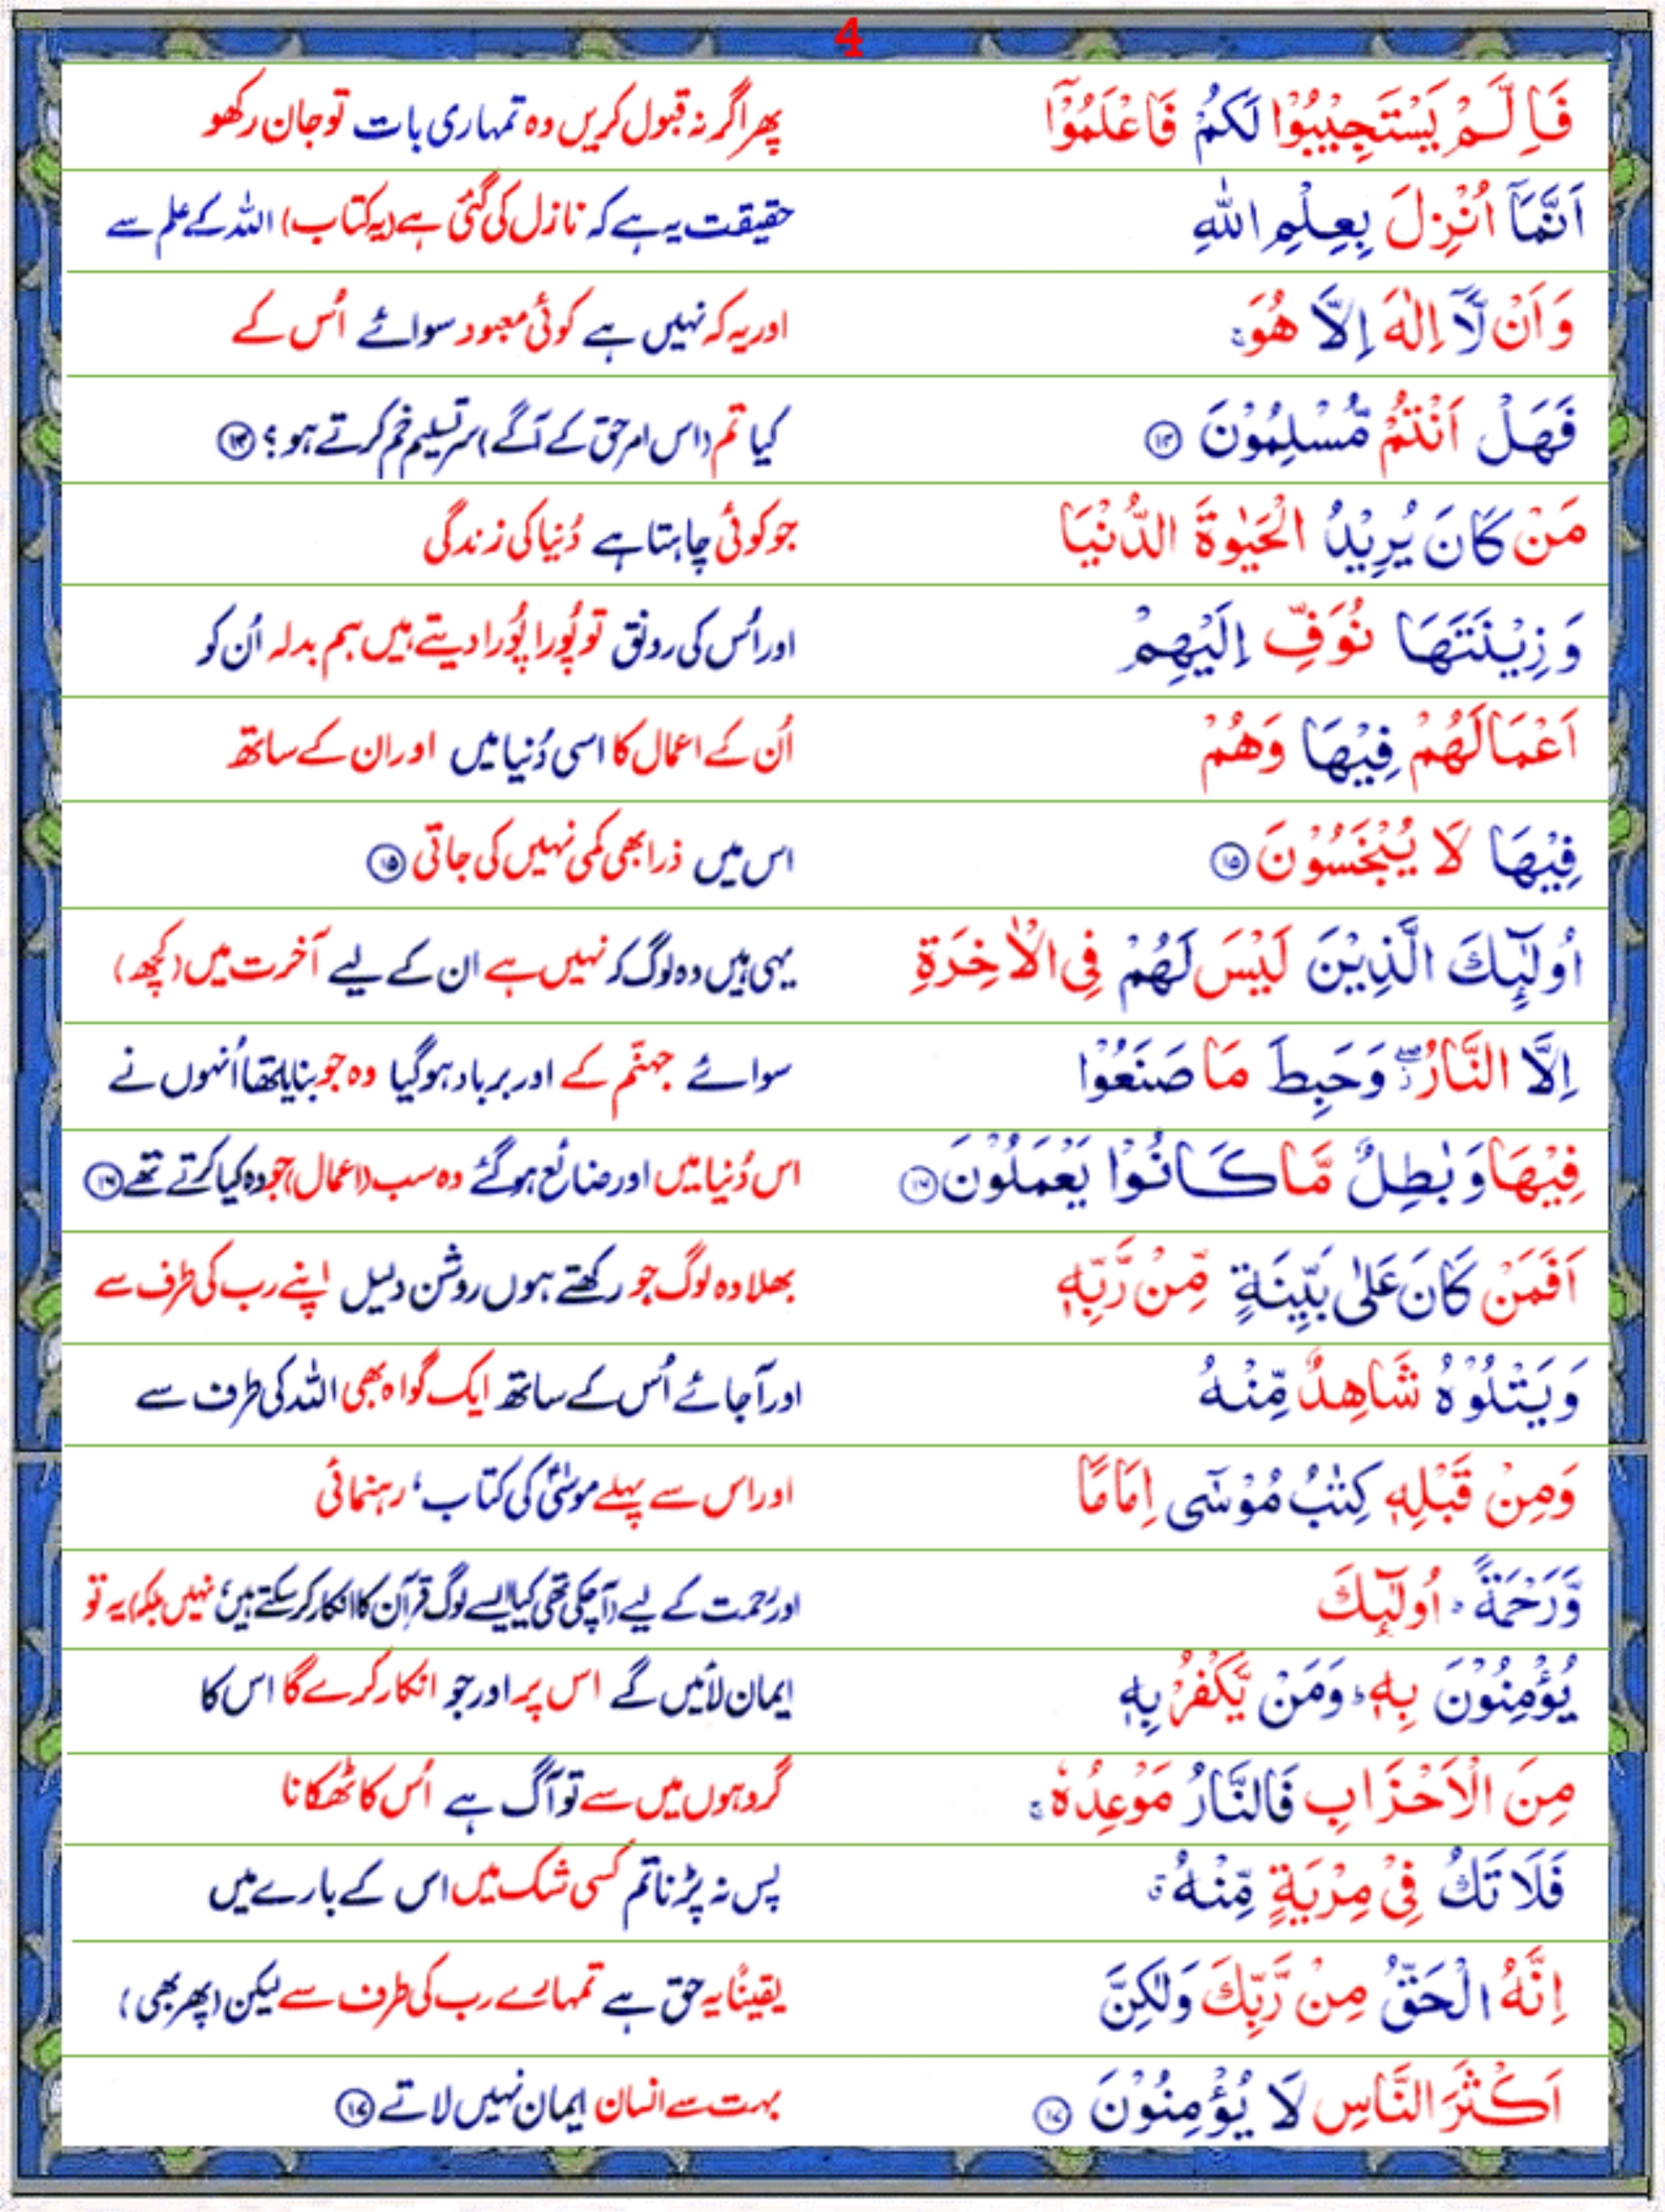 4
فَاِلَّمْ يَسْتَجِيْبُوْا لَكُمْ فَاعْلَمُوْٓا پھر اگر نہ قبول کریں وہ تمہاری بات تو جان رکھو
اَنَّمَآ اُنْزِلَ بِعِلْمِ اللّٰهِ حقیقت یہ ہے کہ نازل کی گئی ہے (یہ کتاب) اللہ کے علم سے
وَاَنْ لَّآ اِلٰهَ اِلَّا هُوَ ۚ اور یہ کہ نہیں ہے کوئی معبود سوائے اُس کے
فَهَلْ اَنْتُمْ مُّسْلِمُوْنَ ۱۴ کیا تم (اس امرِ حق کے آگے) سرِ تسلیم خم کرتے ہو؟ ۱۴
مَنْ كَانَ يُرِيْدُ الْحَيٰوةَ الدُّنْيَا جو کوئی چاہتا ہے دُنیا کی زندگی
وَزِيْنَتَهَا نُوَفِّ اِلَيْهِمْ اور اُس کی رونق تو پُورا پُورا دیتے ہیں ہم بدلہ اُن کو
اَعْمَالَهُمْ فِيْهَا وَهُمْ اُن کے اعمال کا اسی دُنیا میں اور ان کے ساتھ
فِيْهَا لَا يُبْخَسُوْنَ ۱۵ اس میں ذرا بھی کمی نہیں کی جاتی ۱۵
اُولٰٓئِكَ الَّذِيْنَ لَيْسَ لَهُمْ فِى الْاٰخِرَةِ یہی ہیں وہ لوگ کہ نہیں ہے ان کے لیے آخرت میں (کچھ)
اِلَّا النَّارُ ۖ وَحَبِطَ مَا صَنَعُوْا سوائے جہنّم کے اور برباد ہوگیا وہ جو بنایا تھا اُنہوں نے
فِيْهَا وَبٰطِلٌ مَّا كَانُوْا يَعْمَلُوْنَ ۱۶ اس دُنیا میں اور ضائع ہوگئے وہ سب (اعمال) جو وہ کیا کرتے تھے ۱۶
اَفَمَنْ كَانَ عَلٰى بَيِّنَةٍ مِّنْ رَّبِّهٖ بھلا وہ لوگ جو رکھتے ہوں روشن دلیل اپنے رب کی طرف سے
وَيَتْلُوْهُ شَاهِدٌ مِّنْهُ اور آجائے اُس کے ساتھ ایک گواہ بھی اللہ کی طرف سے
وَمِنْ قَبْلِهٖ كِتٰبُ مُوْسٰٓى اِمَامًا اور اس سے پہلے موسٰیؑ کی کتاب، رہنمائی
وَّرَحْمَةً ۭ اُولٰٓئِكَ اور رحمت کے لیے (آچکی تھی کیا ایسے لوگ قرآن کا انکار کرسکتے ہیں؟ نہیں بلکہ) یہ تو
يُؤْمِنُوْنَ بِهٖ ۭ وَمَنْ يَّكْفُرْ بِهٖ ایمان لائیں گے اس پر اور جو انکار کرے گا اس کا
مِنَ الْاَحْزَابِ فَالنَّارُ مَوْعِدُهٗ ۚ گروہوں میں سے تو آگ ہے اُس کا ٹھکانا
فَلَا تَكُ فِىْ مِرْيَةٍ مِّنْهُ ۤ پس نہ پڑنا تم کسی شک میں اس کے بارے میں
اِنَّهُ الْحَقُّ مِنْ رَّبِّكَ وَلٰكِنَّ یقینًا یہ حق ہے تمہارے رب کی طرف سے لیکن (پھر بھی)
اَكْثَرَ النَّاسِ لَا يُؤْمِنُوْنَ ۱۷ بہت سے انسان ایمان نہیں لاتے ۱۷